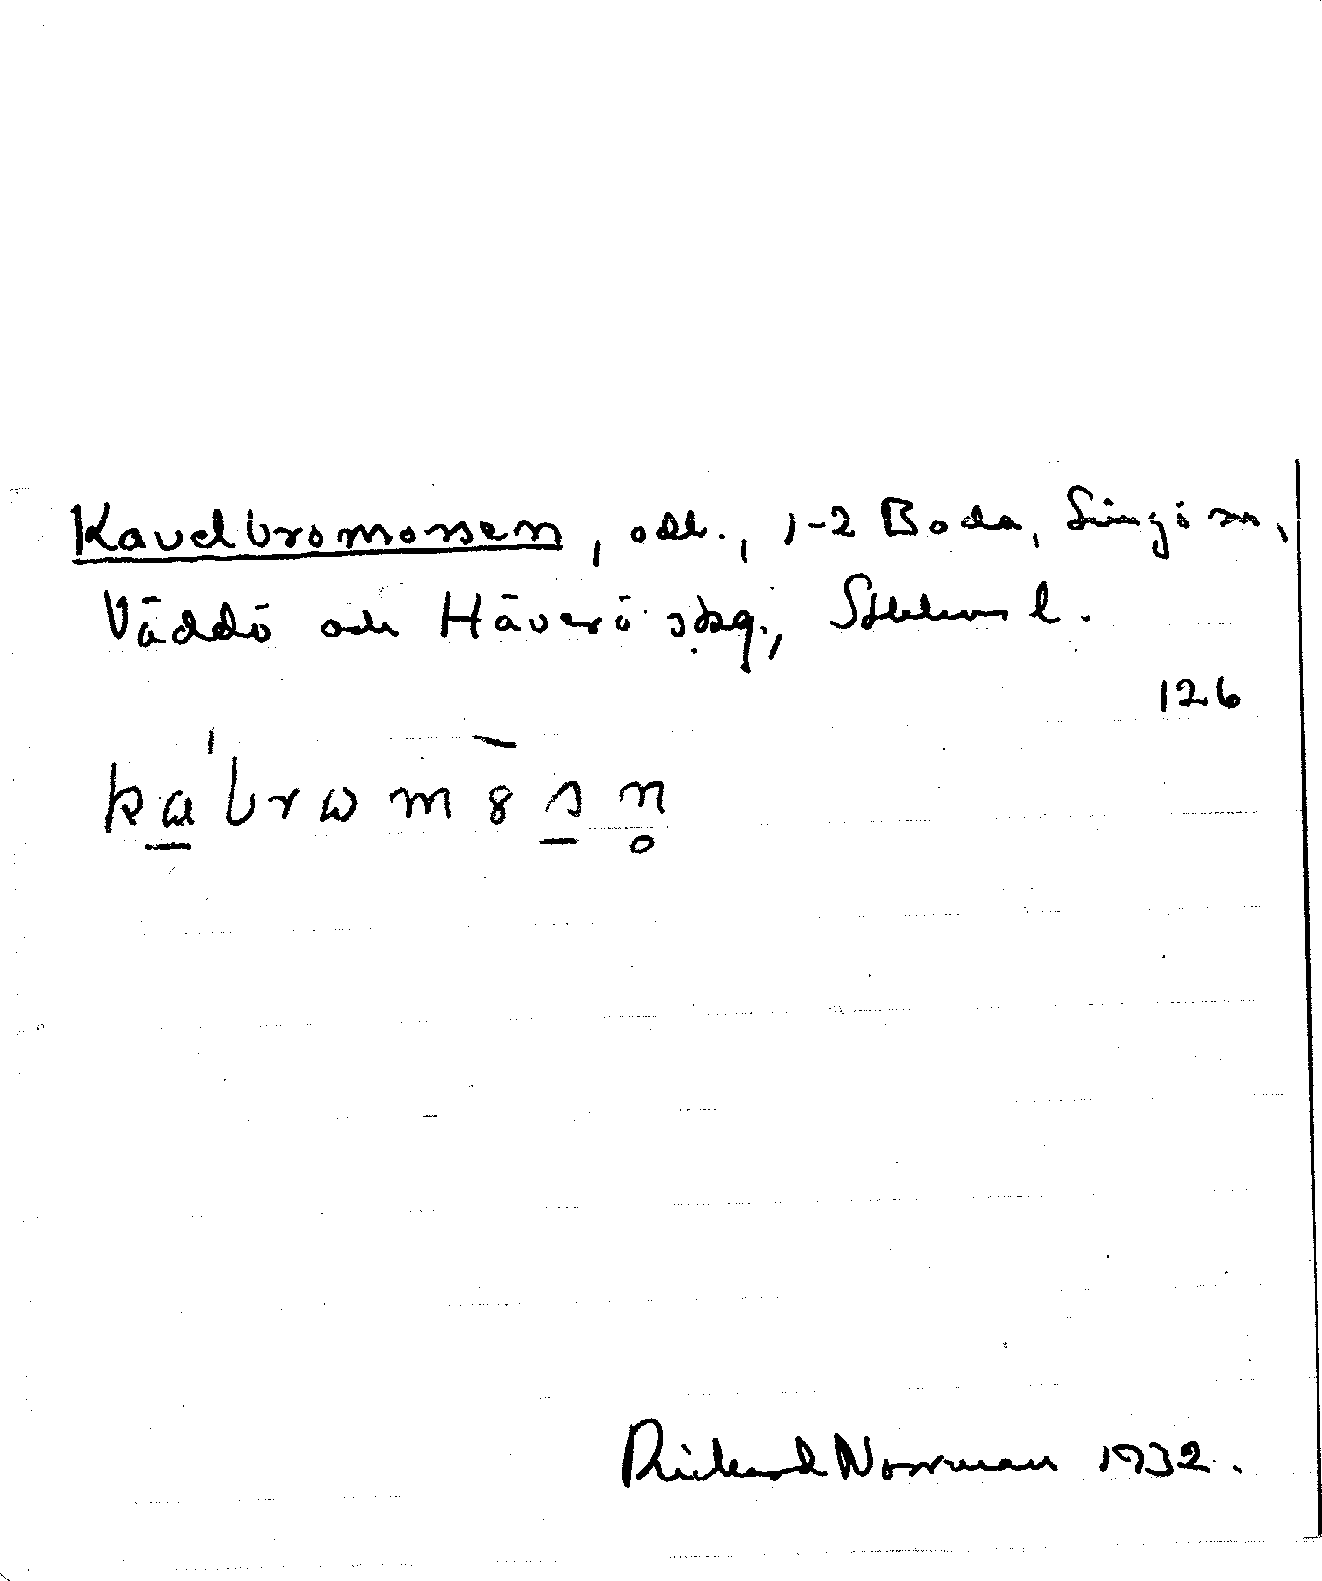 Kavelbromossen, odl., 1-2 Boda, Singö sn,
Väddö och Häverö skg., Sthlms l.
126
Rickard Norrman 1932.